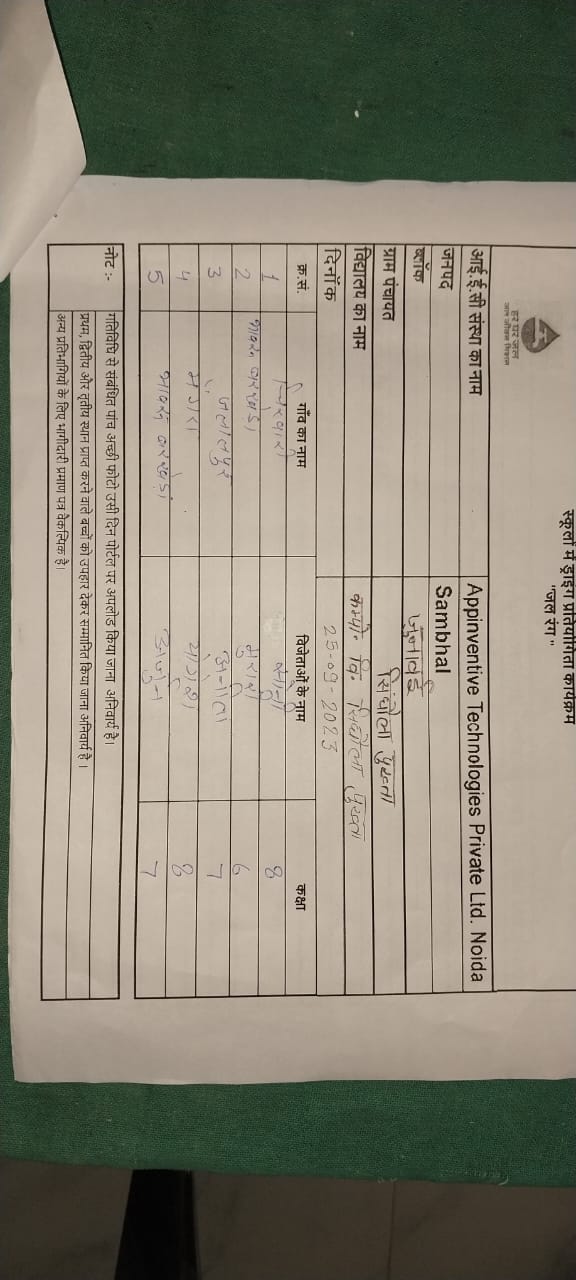 हर घर जल
जल जीवन मिशन
स्कूलों में ड्राइंग प्रतियोगिता कार्यक्रम
"जल रंग"
आई.ई.सी संस्था का नाम Appinventive Technologies Private Ltd. Noida
जनपद Sambhal
ब्लॉक जुनावई
ग्राम पंचायत सिंघौला पुख्ता
विद्यालय का नाम कम्पो. वि. सिंघौला पुख्ता
दिनाँक 25-09-2023
क्र.सं. गाँव का नाम विजेताओं के नाम कक्षा
1 8
2 6
3 जलालपुर 7
4 8
5 7
नोट :- गतिविधि से संबंधित पांच अच्छी फोटो उसी दिन पोर्टल पर अपलोड किया जाना अनिवार्य है।
प्रथम, द्वितीय और तृतीय स्थान प्राप्त करने वाले बच्चों को उपहार देकर सम्मानित किया जाना अनिवार्य है।
अन्य प्रतिभागियों के लिए भागीदारी प्रमाण पत्र वैकल्पिक है।